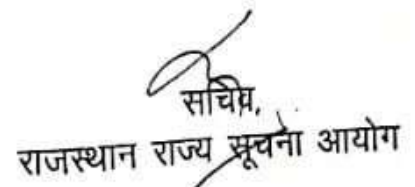 सचिव,
राजस्थान राज्य सूचना आयोग